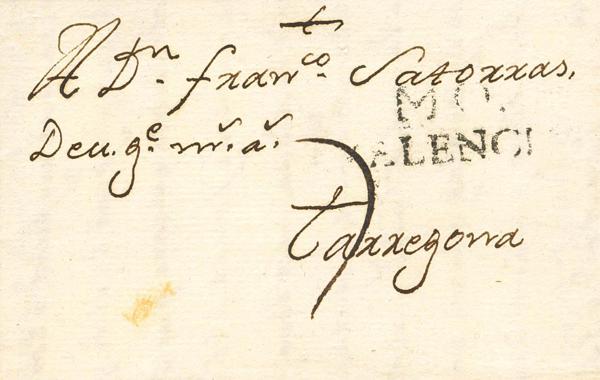 A Dn. Franco. Satorras,
MO.
Deu. ge. ms. as.
ALENCI
Tarregona